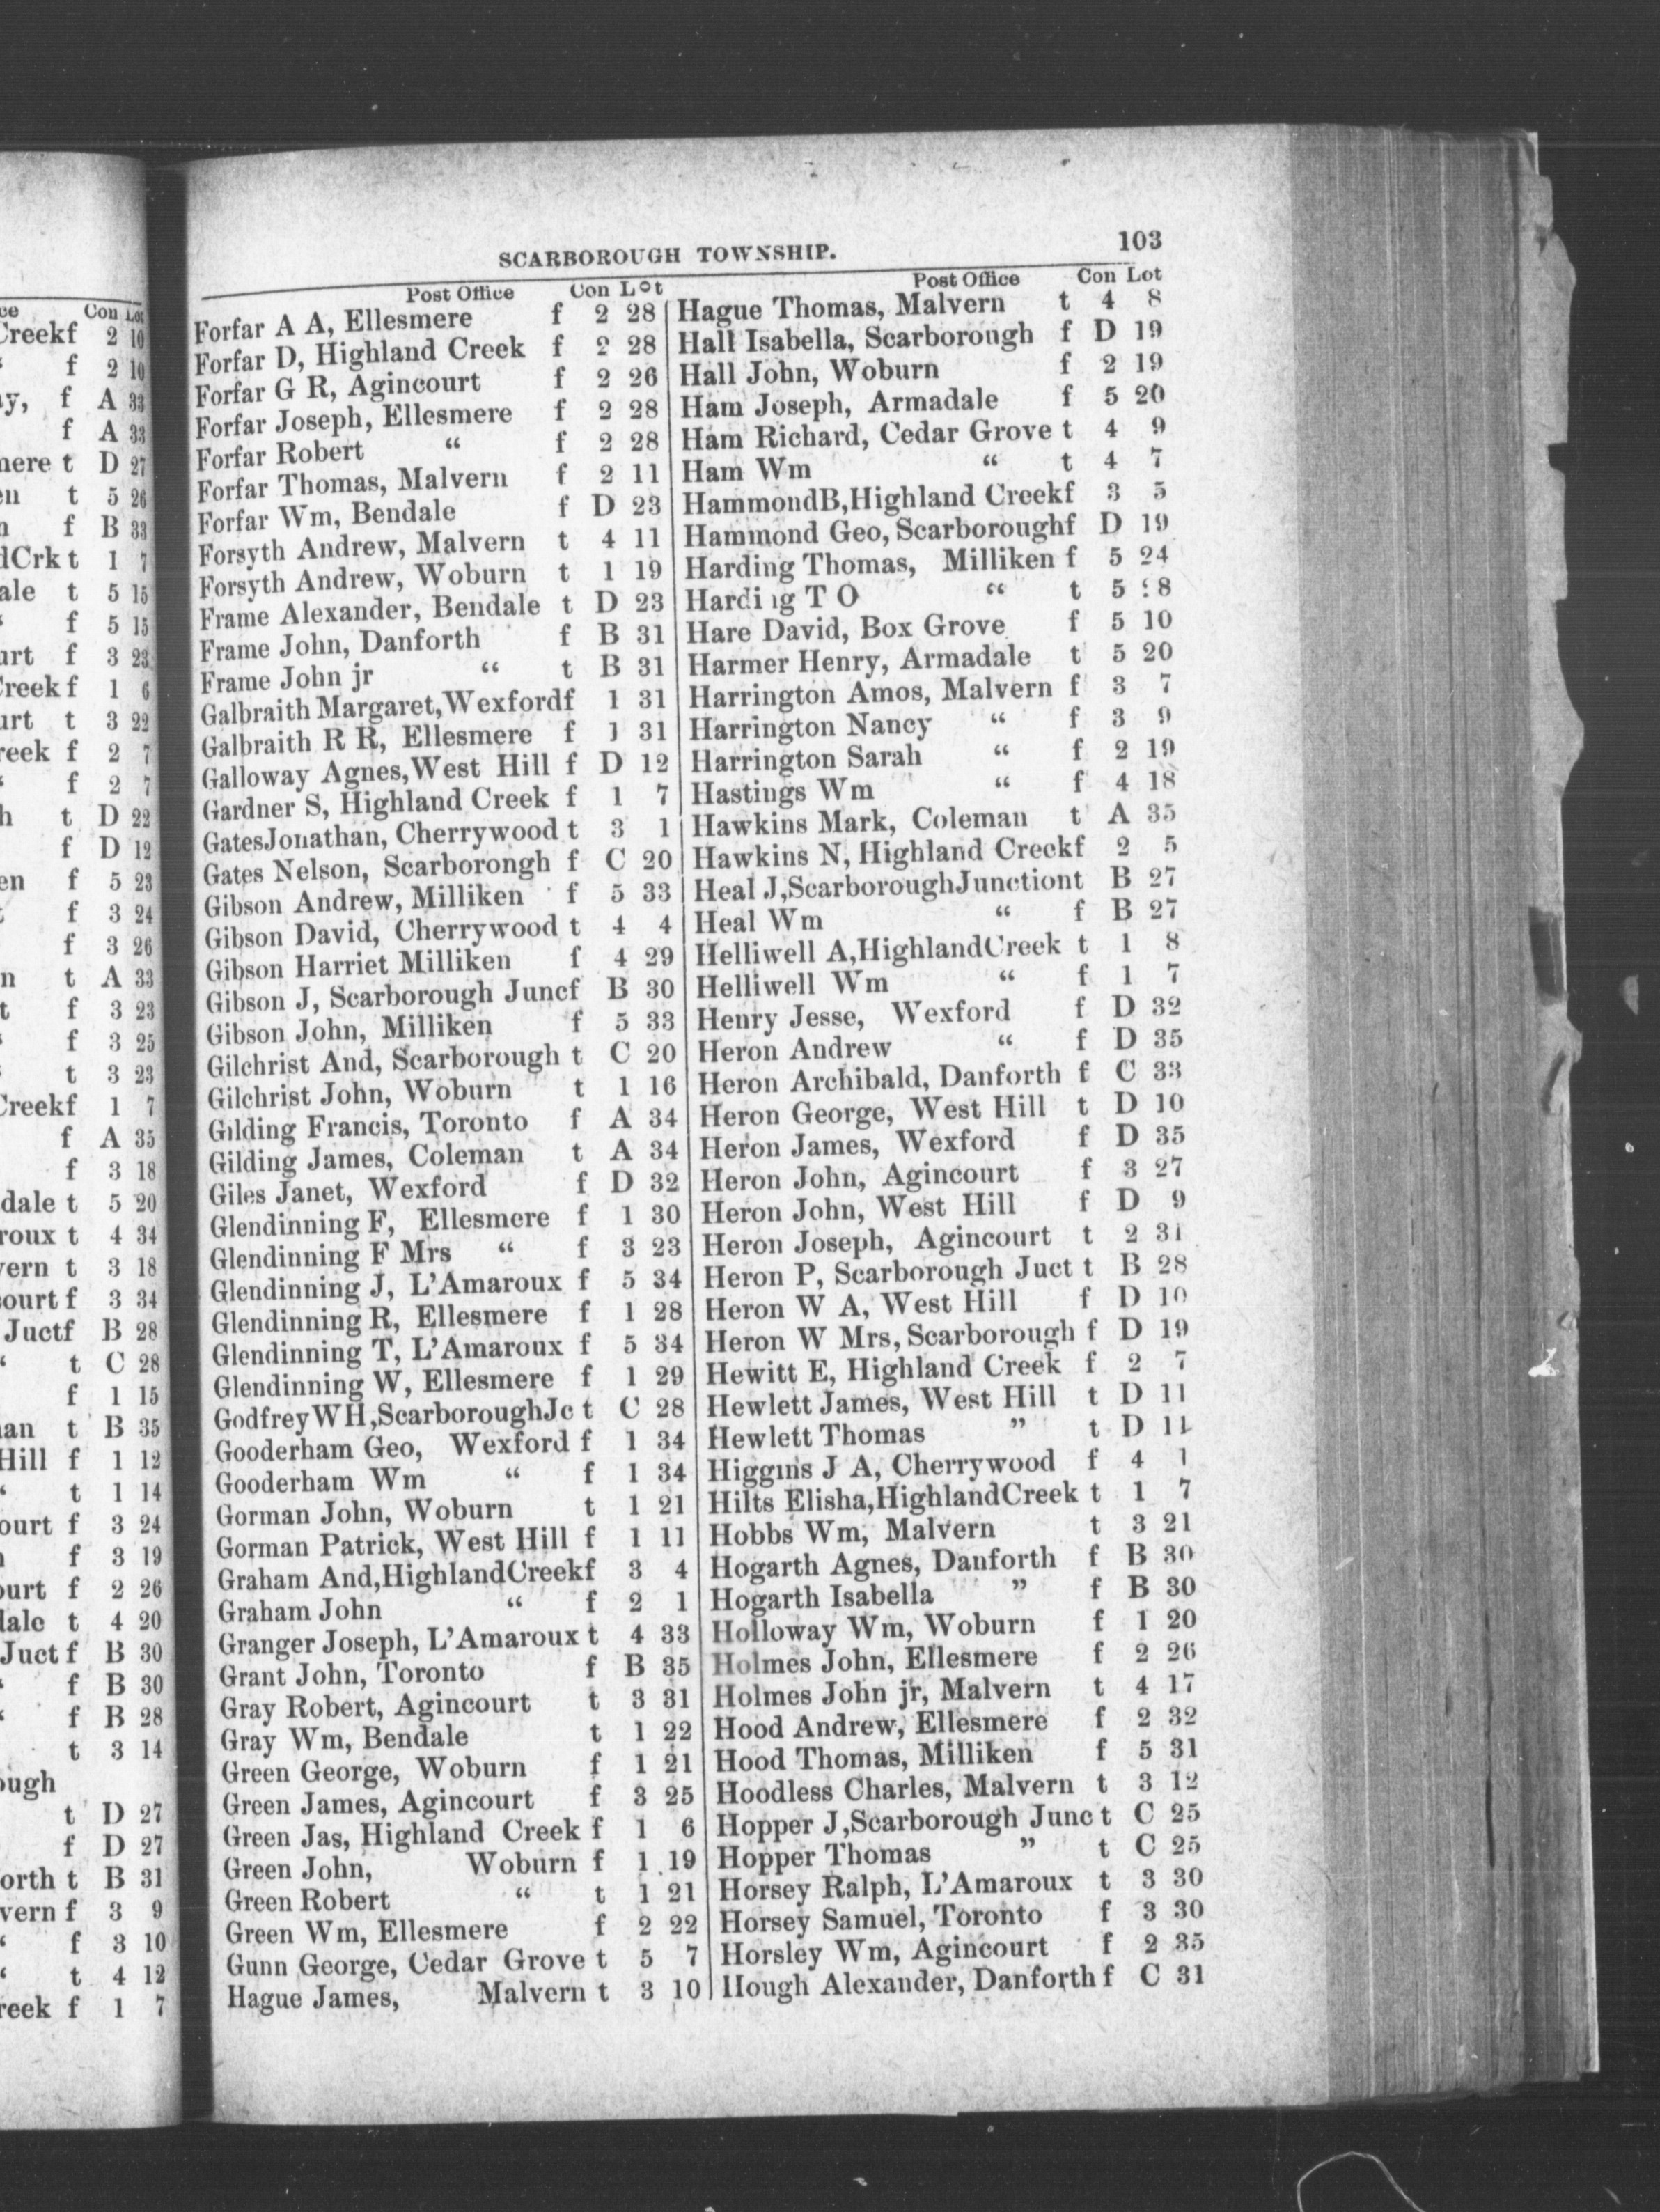 ce Con Lot
Creekf 2 10
f 2 10
f A 33
f A 33
mere t D 27
t 5 26
f B 33
dCrk t 1 7
ale t 5 15
f 5 15
urt f 3 23
Creek f 1 6
urt t 3 22
reek f 2 7
f 2 7
h t D 22
f D 12
en f 5 23
f 3 24
f 3 26
n t A 33
t f 3 23
f 3 25
t 3 23
Creekf 1 7
f A 35
f 3 18
dale t 5 20
roux t 4 34
vern t 3 18
court f 3 34
Juctf B 28
t C 28
f 1 15
an t B 35
Hill f 1 12
t 1 14
ourt f 3 24
f 3 19
ourt f 2 26
dale t 4 20
Juct f B 30
f B 30
f B 28
t 3 14
ough
t D 27
f D 27
orth t B 31
vern f 3 9
f 3 10
t 4 12
reek f 1 7
SCARBOROUGH TOWNSHIP. 103
Post Office Con Lot
Forfar A A, Ellesmere f 2 28
Forfar D, Highland Creek f 2 28
Forfar G R, Agincourt f 2 26
Forfar Joseph, Ellesmere f 2 28
Forfar Robert “ f 2 28
Forfar Thomas, Malvern f 2 11
Forfar Wm, Bendale f D 23
Forsyth Andrew, Malvern t 4 11
Forsyth Andrew, Woburn t 1 19
Frame Alexander, Bendale t D 23
Frame John, Danforth f B 31
Frame John jr “ t B 31
Galbraith Margaret,Wexfordf 1 31
Galbraith R R, Ellesmere f 1 31
Galloway Agnes,West Hill f D 12
Gardner S, Highland Creek f 1 7
GatesJonathan, Cherrywood t 3 1
Gates Nelson, Scarborongh f C 20
Gibson Andrew, Milliken f 5 33
Gibson David, Cherrywood t 4 4
Gibson Harriet Milliken f 4 29
Gibson J, Scarborough Juncf B 30
Gibson John, Milliken f 5 33
Gilchrist And, Scarborough t C 20
Gilchrist John, Woburn t 1 16
Gilding Francis, Toronto f A 34
Gilding James, Coleman t A 34
Giles Janet, Wexford f D 32
Glendinning F, Ellesmere f 1 30
Glendinning F Mrs “ f 3 23
Glendinning J, L’Amaroux f 5 34
Glendinning R, Ellesmere f 1 28
Glendinning T, L’Amaroux f 5 34
Glendinning W, Ellesmere f 1 29
GodfreyWH,ScarboroughJc t C 28
Gooderham Geo, Wexford f 1 34
Gooderham Wm “ f 1 34
Gorman John, Woburn t 1 21
Gorman Patrick, West Hill f 1 11
Graham And,HighlandCreekf 3 4
Graham John “ f 2 1
Granger Joseph, L’Amaroux t 4 33
Grant John, Toronto f B 35
Gray Robert, Agincourt t 3 31
Gray Wm, Bendale t 1 22
Green George, Woburn f 1 21
Green James, Agincourt f 3 25
Green Jas, Highland Creek f 1 6
Green John, Woburn f 1 19
Green Robert “ t 1 21
Green Wm, Ellesmere f 2 22
Gunn George, Cedar Grove t 5 7
Hague James, Malvern t 3 10
Post Office Con Lot
Hague Thomas, Malvern t 4 8
Hall Isabella, Scarborough f D 19
Hall John, Woburn f 2 19
Ham Joseph, Armadale f 5 20
Ham Richard, Cedar Grove t 4 9
Ham Wm “ t 4 7
HammondB,Highland Creekf 3 5
Hammond Geo, Scarboroughf D 19
Harding Thomas, Milliken f 5 24
Harding T O “ t 5
Hare David, Box Grove f 5 10
Harmer Henry, Armadale t 5 20
Harrington Amos, Malvern f 3 7
Harrington Nancy “ f 3 9
Harrington Sarah “ f 2 19
Hastings Wm “ f 4 18
Hawkins Mark, Coleman t A 35
Hawkins N, Highland Creekf 2 5
Heal J,ScarboroughJunctiont B 27
Heal Wm “ f B 27
Helliwell A,HighlandCreek t 1 8
Helliwell Wm “ f 1 7
Henry Jesse, Wexford f D 32
Heron Andrew “ f D 35
Heron Archibald, Danforth f C 33
Heron George, West Hill t D 10
Heron James, Wexford f D 35
Heron John, Agincourt f 3 27
Heron John, West Hill f D 9
Heron Joseph, Agincourt t 2 31
Heron P, Scarborough Juct t B 28
Heron W A, West Hill f D 10
Heron W Mrs, Scarborough f D 19
Hewitt E, Highland Creek f 2 7
Hewlett James, West Hill t D 11
Hewlett Thomas ” t D 11
Higgins J A, Cherrywood f 4 1
Hilts Elisha,HighlandCreek t 1 7
Hobbs Wm, Malvern t 3 21
Hogarth Agnes, Danforth f B 30
Hogarth Isabella ” f B 30
Holloway Wm, Woburn f 1 20
Holmes John, Ellesmere f 2 26
Holmes John jr, Malvern t 4 17
Hood Andrew, Ellesmere f 2 32
Hood Thomas, Milliken f 5 31
Hoodless Charles, Malvern t 3 12
Hopper J,Scarborough Junc t C 25
Hopper Thomas ” t C 25
Horsey Ralph, L’Amaroux t 3 30
Horsey Samuel, Toronto f 3 30
Horsley Wm, Agincourt f 2 35
Hough Alexander, Danforth f C 31